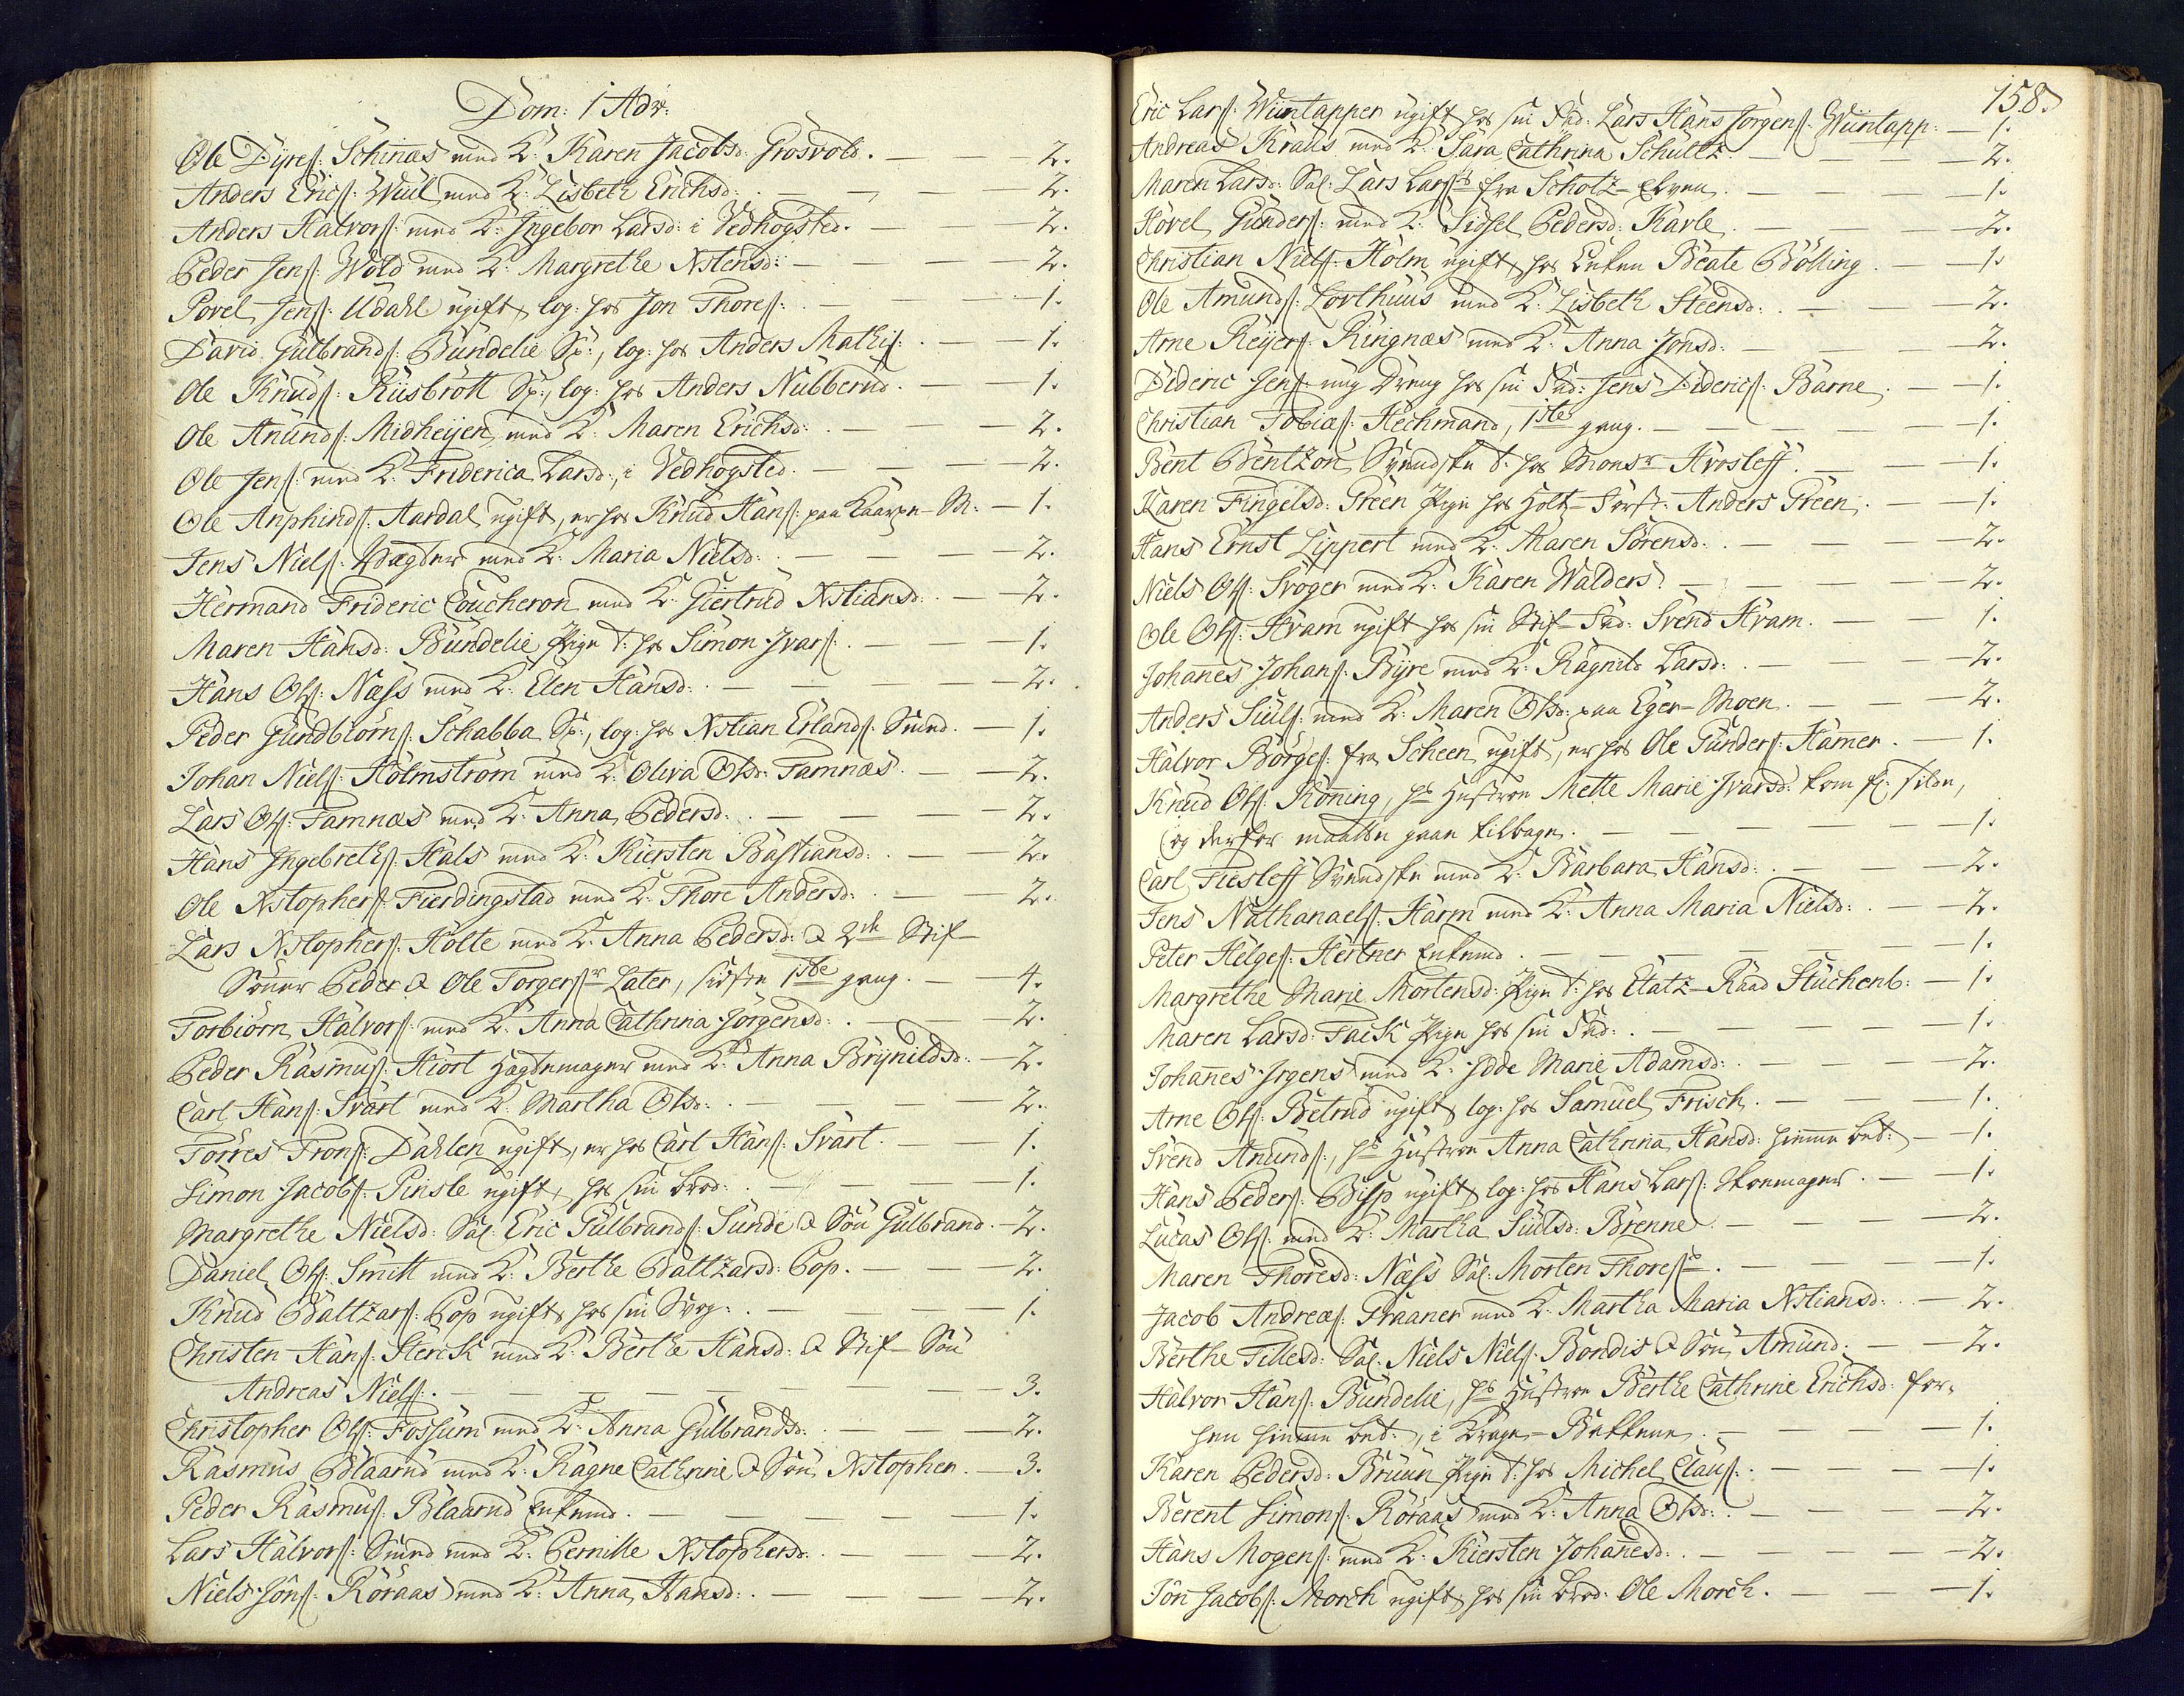 Dom: 1 Adv:
Ole Dÿres: Schinæs med K: Karen Jacobsd: Grosvold. — 2.
Anders Erics: Wiül med K: Lisbeth Erichsd: — 2.
Anders Halvors: med K: Ingebor Larsd: i Vedhogsted. — 2.
Peder Jens: Wold med K: Margrethe Xstensd: — 2.
Povel Jens: Udahl ugift, log: hos Jon Thores: — 1.
David Gulbrands: Bündelie Sp:, log: hos Anders Mathis: — 1.
Ole Knuds: Riisbrott Sp:, log: hos Anders Nubberud. — 1.
Ole Anunds: Midheÿen, med K: Maren Erichsd: — 2.
Ole Jens: med K: Friderica Larsd:, i Vedhogsted. — 2.
Ole Anphinds: Aardal ugift, er hos Knud Hans: paa M: — 1.
Jens Niels: Wægter med K: Maria Nielsd: — 2.
Hermand Frideric Coucheron med K: Giertrud Xstiansd: — 2.
Maren Hansd: Bündelie Pige t: hos Simon Ivars: — 1.
Hans Ols: Næss med K: Elen Hansd: — 2.
Peder Gundbiörns: Schabba Sp:, log: hos Xstian Erlands: Smed. — 1.
Johan Niels: Holmström med K: Oliva Olsd: Tamnæs. — 2.
Lars Ols: Tamnæs med K: Anna Pedersd: — 2.
Hans Ingebreths: Hals med K: Kiersten Bastiansd: — 2.
Ole Xstophers: Fierdingstad med K: Thore Andersd: — 2.
Lars Xstophers: Holte med K: Anna Pedersd: & 2de Stif-
Sönner Peder & Ole Torgersr Later, sidste 1ste gang. — 4.
Torbiörn Halvors: med K: Anna Cathrina Jörgensd: — 2.
Peder Rasmus: Hiort Hagtemager med K: Anna Brÿnildsd: — 2.
Carl Hans: Svart med K: Martha Olsd: — 2.
Torres Trons: Dahlen ugift, er hos Carl Hans: Svart — 1.
Simon Jacobs: Pinsle ugift, hos sin brod: — 1.
Margrethe Nielsd: Sal: Eric Gulbrands: Sunde & Sön Gulbrand. — 2.
Daniel Ols: Smitt med K: Berthe Baltzarsd: Pop. — 2.
Knud Baltzars: Pop ugift, hos sin Svog: — 1.
Christen Hans: Sterck med K: Berthe Hansd: & Stif-Sön
Andreas Niels: — 3.
Christopher Ols: Fossum med K: Anna Gulbrandsd: — 2.
Rasmus Blaarud med K: Ragne Cathrine & Sön Xstopher. — 3.
Peder Rasmus: Blaarud Enkemd. — 1.
Lars Halvors: Smed med K: Pernille Xstophersd: — 2.
Niels Jons: Röraas med K: Anna Hansd: — 2.
158.
Eric Lars: Wiintapper ugift hos sin Fad: Lars Hans Jörgens: Wiintapp: — 1.
Andreas Kraus med K: Sara Cathrina Schultz. — 2.
Maren Larsd: Sal: Lars Lars: fra Scholtz-Elven. — 1.
Hovel Gunders: med K: Sidsel Pedersd: Karle. — 2.
Christian Niels: Holm ugift, hos Enken Beate Bölling. — 1.
Ole Amunds: Lovthuus med K: Lisbeth Steensd: — 2.
Arne Reÿers: Ringnæs med K: Anna Jonsd: — 2.
Dideric Jens: ung Dreng hos sin Fad: Jens Diderics: Barne. — 1.
Christian Tobias: Hechmand, 1ste gang. — 1.
Bent Bentzon Svendske t: hos Monsr Hrosleff. — 1.
Karen Tingelsd: Green Pige hos Holt-Först: Anders Green. — 1.
Hans Ernst Lippert med K: Maren Sörensd: — 2.
Niels Ols: Svoger med K: Karen Walders. — 2.
Ole Ols: Hvam ugift hos sin Stif-Fad: Svend Hvam. — 1.
Johannes Johans: Bÿre med K: Ragnild Larsd: — 2.
Anders Siuls: med K: Maren Olsd: paa Eger-Moen. — 2.
Halvor Börges: fra Scheen ugift, er hos Ole Gunders: Hamer. — 1.
Knud Ols: Köning, hs Hustroe Mette Marie Ivarsd: kom f: silde,
(og derfor maatte gaae tilbage. — 1.
Carl Fiesleff Svendske med K: Barbara Hansd: — 2.
Jens Nathanaels: Harm med K: Anna Maria Nielsd: — 2.
Peter Helges: Hertner Enkemd. — 1.
Margrethe Marie Mortensd: Pige t: hos Etatz-Raad Stuchenb: — 1.
Maren Larsd: Faick Pige hos sin Fad: — 1.
Johannes Irgens med K: Idde Marie Adamsd: — 2.
Arne Ols: Betrud ugift, log: hos Samuel Frisch. — 1.
Svend Anunds:, hs Hustroe Anna Cathrina Hansd: hiemme bet: — 1.
Hans Peders: Bisp ugift, log: hos Hans Lars: Skoemager. — 1.
Lucas Ols: med K: Martha Siulsd: Brenne. — 2.
Maren Thoresd: Næss Sal: Morten Thores: — 1.
Jacob Andreas: Graaner med K: Martha Maria Xstiansd: — 2.
Berthe Tillesd: Sal: Niels Niels: Bondis & Sön Amund. — 2.
Halvor Hans: Bündelie, hs Hustroe Berthe Cathrine Erichsd: for-
hen hiemme bet:, i Krage-Bakkene. — 1.
Karen Pedersd: Bruun Pige t: hos Michel Claus: — 1.
Berent Simons: Röraas med K: Anna Olsd: — 2.
Hans Mogens: med K: Kiersten Johanesd: — 2.
Jon Jacobs: Morch ugift, hos sin brod: Ole Morch. — 1.